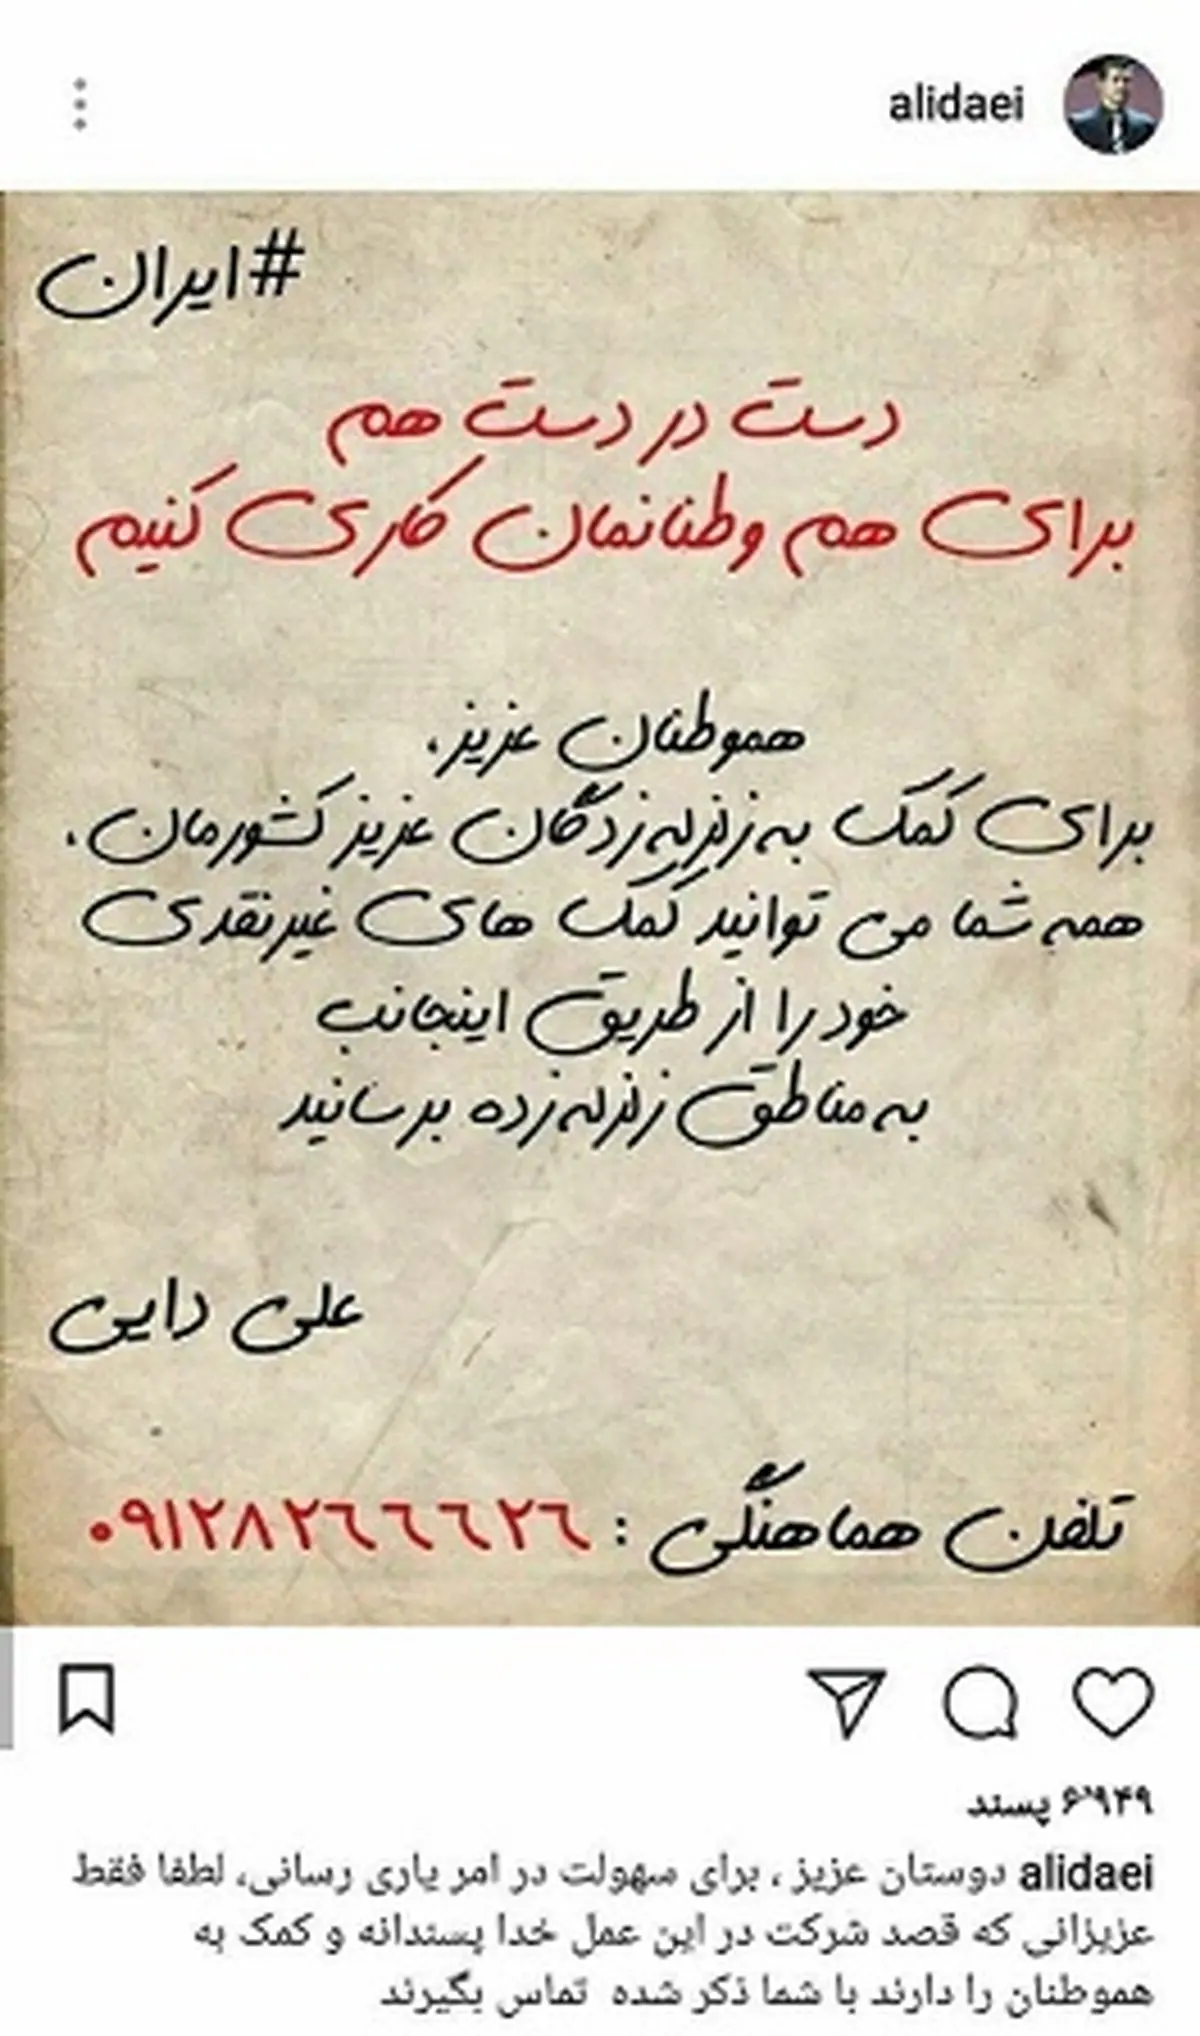 alidaei
#ایران
دست در دست هم
برای هم وطنانمان کاری کنیم
هموطنان عزیز،
برای کمک به زلزله‌زدگان عزیز کشورمان،
همه شما می توانید کمک های غیرنقدی
خود را از طریق اینجانب
به مناطق زلزله‌زده برسانید
علی دایی
تلفن هماهنگی : ۰۹۱۲۸۲۶۶۶۲۶
۶٬۹۴۹ پسند
alidaei دوستان عزیز ، برای سهولت در امر یاری رسانی، لطفا فقط
عزیزانی که قصد شرکت در این عمل خدا پسندانه و کمک به
هموطنان را دارند با شما ذکر شده تماس بگیرند